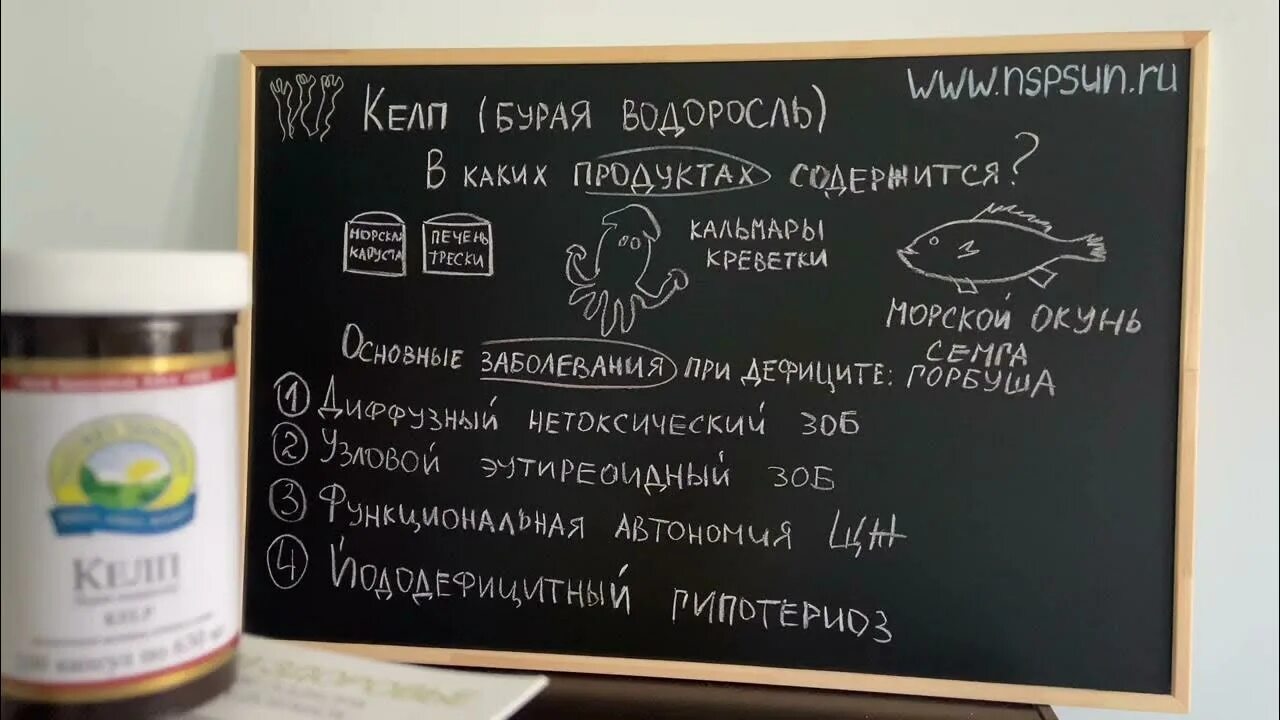 www.nspsun.ru
Келп (бурая водоросль)
В каких продуктах содержится?
МОРСКАЯ
КАПУСТА
ПЕЧЕНЬ
ТРЕСКИ
КАЛЬМАРЫ
КРЕВЕТКИ
МОРСКОЙ ОКУНЬ
СЕМГА
ГОРБУША
Основные заболевания при дефиците:
1 Диффузный нетоксический зоб
2 Узловой эутиреоидный зоб
3 Функциональная автономия ЩЖ
4 Йододефицитный гипотериоз
Келп
KELP
капсул по